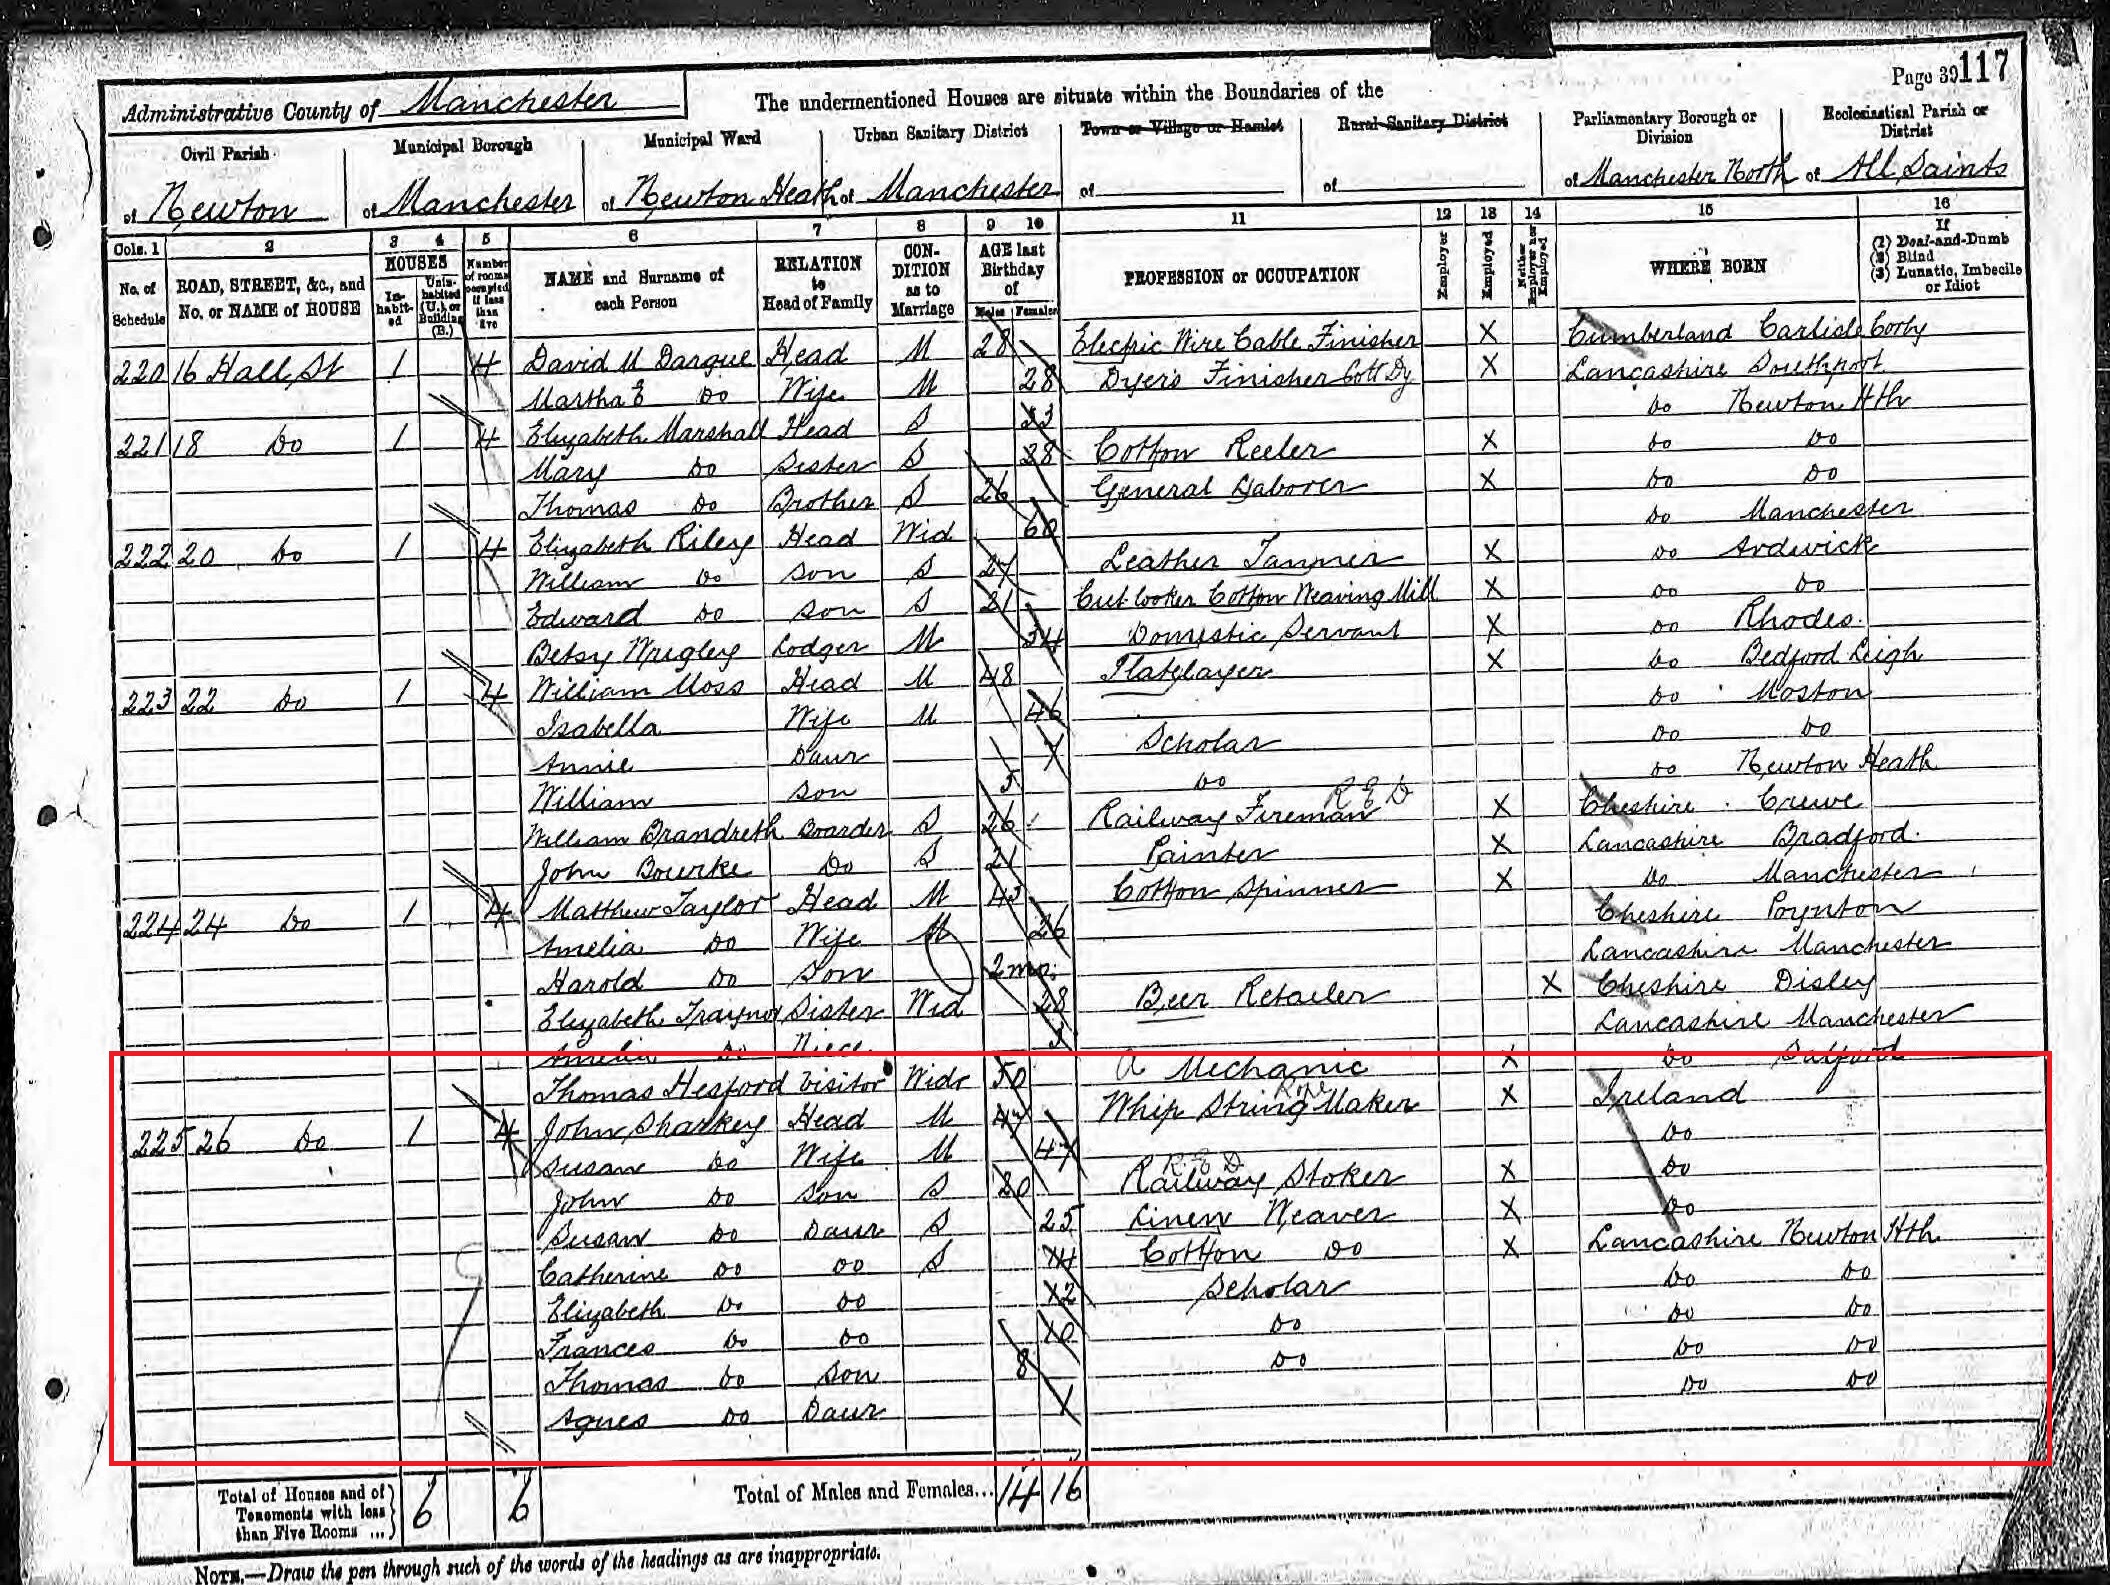 Page 39 117
Administrative County of Manchester
The undermentioned Houses are situate within the Boundaries of the
Civil Parish
of Newton
Municipal Borough
of Manchester
Municipal Ward
of Newton Heath
Urban Sanitary District
of Manchester
Town or Village or Hamlet
of
Rural Sanitary District
of
Parliamentary Borough or Division
of Manchester North
Ecclesiastical Parish or District
of All Saints
Cols. 1 2 3 4 5 6 7 8 9 10 11 12 13 14 15 16
No. of Schedule
ROAD, STREET, &c., and No. or NAME of HOUSE
HOUSES
In-habit-ed
Unin-habited (U.) or Building (B.)
Number of rooms occupied if less than five
NAME and Surname of each Person
RELATION to Head of Family
CON-DITION as to Marriage
AGE last Birthday of
Males Females
PROFESSION or OCCUPATION
Employer
Employed
Neither Employer nor Employed
WHERE BORN
If
(1) Deaf-and-Dumb
(2) Blind
(3) Lunatic, Imbecile or Idiot
220 16 Hall St 1 4 David M Dargue Head M 28 Electric Wire Cable Finisher X Cumberland Carlisle Corby
Martha E Do Wife M 28 Dyers Finisher Cott Dy X Lancashire Southport
221 18 Do 1 4 Elizabeth Marshall Head S 33 Do Newton Hth
Mary Do Sister S 28 Cotton Reeler X Do Do
Thomas Do Brother S 26 General Laborer X Do Do
222 20 Do 1 4 Elizabeth Riley Head Wid 60 Do Manchester
William Do Son S 27 Leather Tanner X Do Ardwick
Edward Do Son S 21 Cut looker Cotton Weaving Mill X Do Do
Betsy Wrigley Lodger M 34 Domestic Servant X Do Rhodes
223 22 Do 1 4 William Moss Head M 48 Platelayer X Do Bedford Leigh
Isabella Wife M 46 Do Moston
Annie Daur 7 Scholar Do Do
William Son 5 Do Do Newton Heath
William Brandreth Boarder S 26 Railway Fireman R E D X Cheshire Crewe
John Bourke Do S 21 Painter X Lancashire Bradford
224 24 Do 1 4 Matthew Taylor Head M 43 Cotton Spinner X Do Manchester
Amelia Do Wife M 26 Cheshire Poynton
Harold Do Son 2 mo. Lancashire Manchester
Elizabeth Traynor Sister Wid 28 Beer Retailer X Cheshire Disley
Amelia Do Niece 3 Lancashire Manchester
Thomas Hesford Visitor Widr 50 A Mechanic X Do Salford
225 26 Do 1 4 John Sharkey Head M 47 Whip String Rope Maker X Ireland
Susan Do Wife M 47 Do
John Do Son S 20 R.E.D Railway Stoker X Do
Susan Do Daur S 25 Linen Weaver X Do
Catherine Do Do S 14 Cotton Do X Lancashire Newton Hth
Elizabeth Do Do 12 Scholar Do Do
Frances Do Do 10 Do Do Do
Thomas Do Son 8 Do Do Do
Agnes Do Daur 1 Do Do
Total of Houses and of Tenements with less than Five Rooms ... 6 6
Total of Males and Females... 14 16
NOTE.—Draw the pen through such of the words of the headings as are inappropriate.